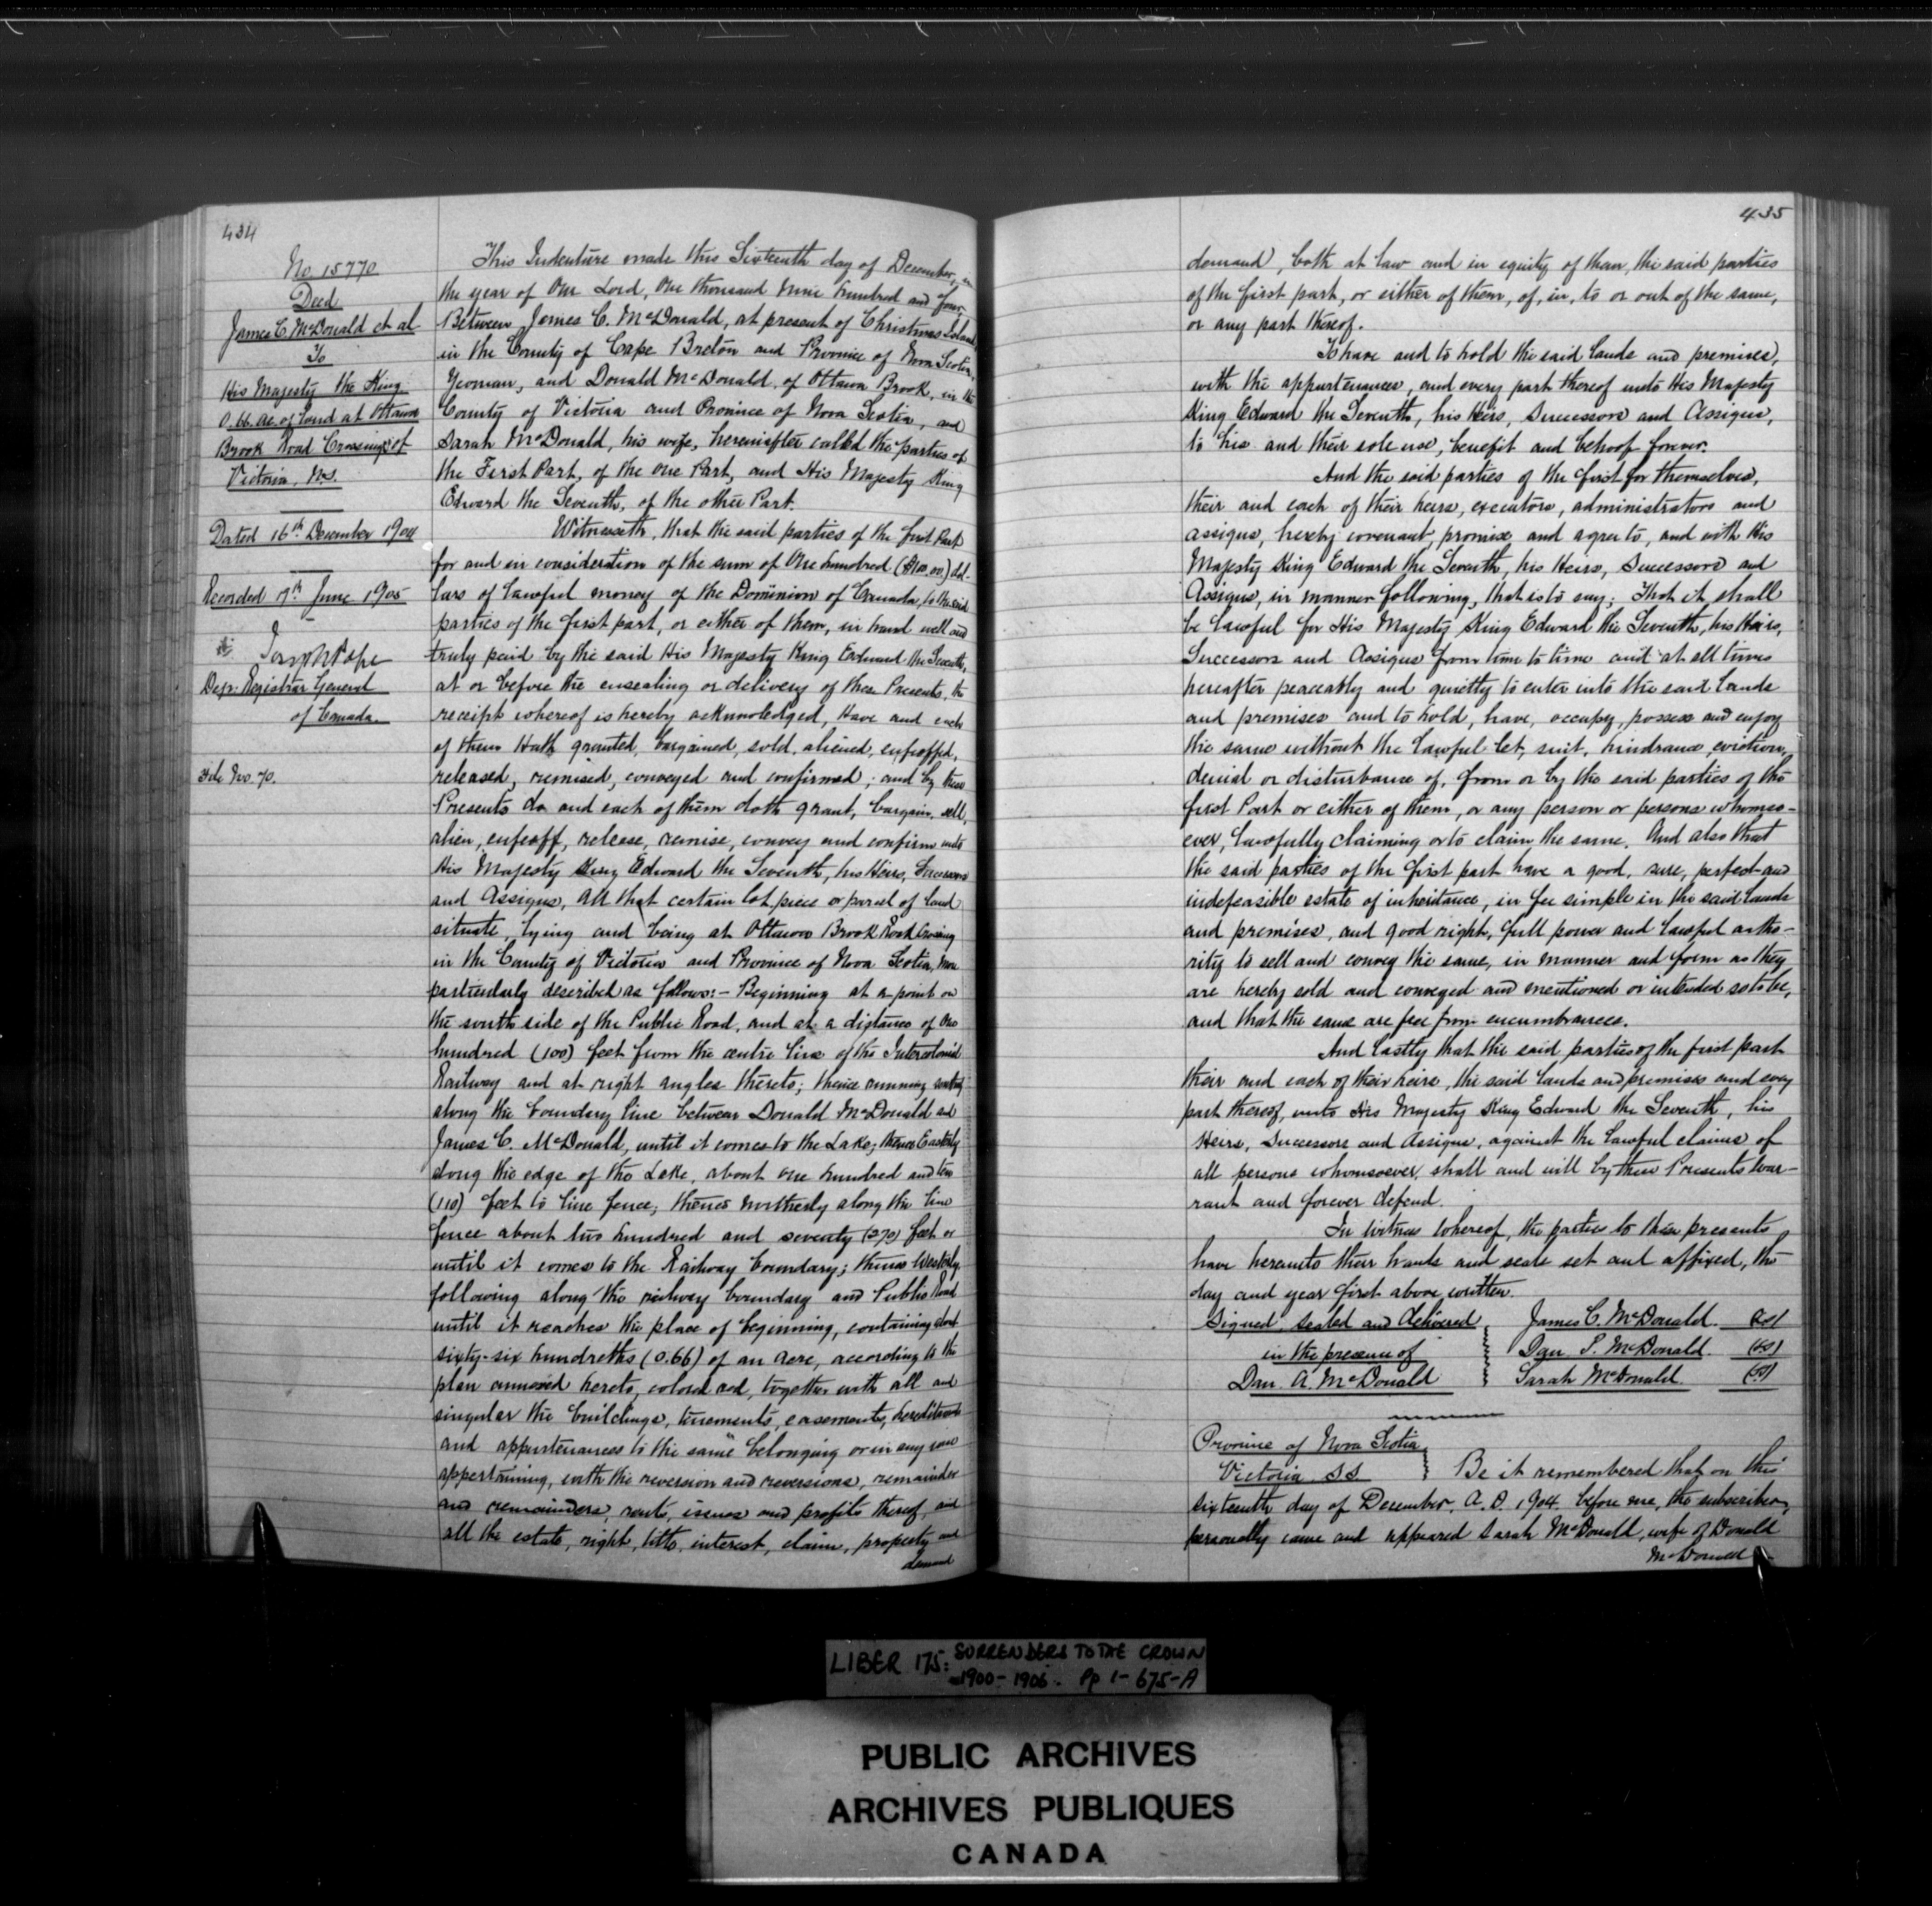 434
No 15770
Deed
James C. McDonald et al
To
His Majesty the King
0.66 ac. of Land at Ottawa
Brook Road Crossing Co of
Victoria, N.S.
Dated 16th December 1904
Recorded 7th June 1905
Joseph Pope
Dep: Registrar General
of Canada.
File No. 70.
This Indenture made this Sixteenth day of December, in
the year of Our Lord, One thousand nine hundred and four,
Between James C. McDonald, at present of Christmas Island,
in the County of Cape Breton and Province of Nova Scotia,
Yeoman, and Donald McDonald, of Ottawa Brook, in the
County of Victoria and Province of Nova Scotia, and
Sarah McDonald, his wife, hereinafter called the parties of
the First Part, of the One Part, and His Majesty King
Edward the Seventh, of the other Part.
Witnesseth, that the said parties of the first Part
for and in consideration of the sum of One hundred ($100.00) dol-
lars of lawful money of the Dominion of Canada, to the said
parties of the first part, or either of them, in hand well and
truly paid by the said His Majesty King Edward the Seventh,
at or before the ensealing or delivery of these Presents, the
receipt whereof is hereby acknowledged, Have and each
of them Hath granted, bargained, sold, aliened, enfeoffed,
released, remised, conveyed and confirmed; and by these
Presents do and each of them doth grant, bargain, sell,
alien, enfeoff, release, remise, convey and confirm unto
His Majesty King Edward the Seventh, his Heirs, Successors
and Assigns, all that certain lot, piece or parcel of land
situate, lying and being at Ottawa Brook Road Crossing
in the County of Victoria and Province of Nova Scotia, more
particularly described as follows:- Beginning at a point on
the south side of the Public Road, and at a distance of One
hundred (100) feet from the centre line of the Intercolonial
Railway and at right angles thereto; thence running southerly
along the boundary line between Donald McDonald and
James C. McDonald, until it comes to the Lake; thence Easterly
along the edge of the Lake, about one hundred and ten
(110) feet to line fence; thence northerly along the line
fence about two hundred and seventy (270) feet or
until it comes to the Railway boundary; thence Westerly
following along the railway boundary and Public Road
until it reaches the place of beginning, containing about
sixty-six hundreths (0.66) of an acre, according to the
plan annexed hereto, colored red, together with all and
singular the buildings, tenements, easements, hereditaments
and appurtenances to the same belonging or in any wise
appertaining, with the reversion and reversions, remainder
and remainders, rents, issues and profits thereof, and
all the estate, right, title, interest, claim, property and
demand
435
demand, both at law and in equity of them, the said parties
of the first part, or either of them, of, in, to or out of the same,
or any part thereof.
To have and to hold the said lands and premises,
with the appurtenances, and every part thereof unto His Majesty
King Edward the Seventh, his Heirs, Successors and Assigns,
to his and their sole use, benefit and behoof forever.
And the said parties of the first for themselves,
their and each of their heirs, executors, administrators and
assigns, hereby covenant, promise and agree to, and with His
Majesty King Edward the Seventh, his Heirs, Successors and
Assigns, in manner following, that is to say; That it shall
be lawful for His Majesty King Edward the Seventh, his Heirs,
Successors and Assigns from time to time and at all times
hereafter peaceably and quietly to enter into the said lands
and premises and to hold, have, occupy, possess and enjoy
the same without the lawful let, suit, hindrance, eviction,
denial or disturbance of, from or by the said parties of the
first Part or either of them, or any person or persons whomso-
ever, lawfully claiming or to claim the same. And also that
the said parties of the first part have a good, sure, perfect and
indefeasible estate of inheritance, in fee simple in the said lands
and premises, and good right, full power and lawful autho-
rity to sell and convey the same, in manner and form as they
are hereby sold and conveyed and mentioned or intended so to be,
and that the same are free from encumbrances.
And lastly that the said parties of the first part
their and each of their heirs, the said lands and premises and every
part thereof, unto His Majesty King Edward the Seventh, his
Heirs, Successors and Assigns, against the lawful claims of
all persons whomsoever, shall and will by these Presents war-
rant and forever defend.
In witness whereof, the parties to these presents
have hereunto their hands and seals set and affixed, the
day and year first above written.
Signed, sealed and delivered
in the presence of
Dan. A. McDonald
James C. McDonald.
Dan P. McDonald.
Sarah McDonald.
Province of Nova Scotia
Victoria SS
Be it remembered that on this
sixteenth day of December, A.D. 1904. before me, the subscriber,
personally came and appeared Sarah McDonald, wife of Donald
McDonald
LIBER 175: SURRENDERS TO THE CROWN
1900-1906. Pp 1-675-A
PUBLIC ARCHIVES
ARCHIVES PUBLIQUES
CANADA